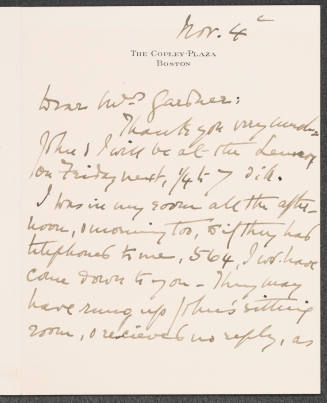 Nov. 4th
THE COPLEY-PLAZA
BOSTON
Dear Mrs Gardner:
Thank you very much.
John & I will be at the
on Friday next, 1/4 to 7
I was in my room all the after-
noon, & morning too, & if they had
telephoned to me, 564, I wd. have
come down to you - They may
have rung up John's sitting
room, & recieved no reply, as